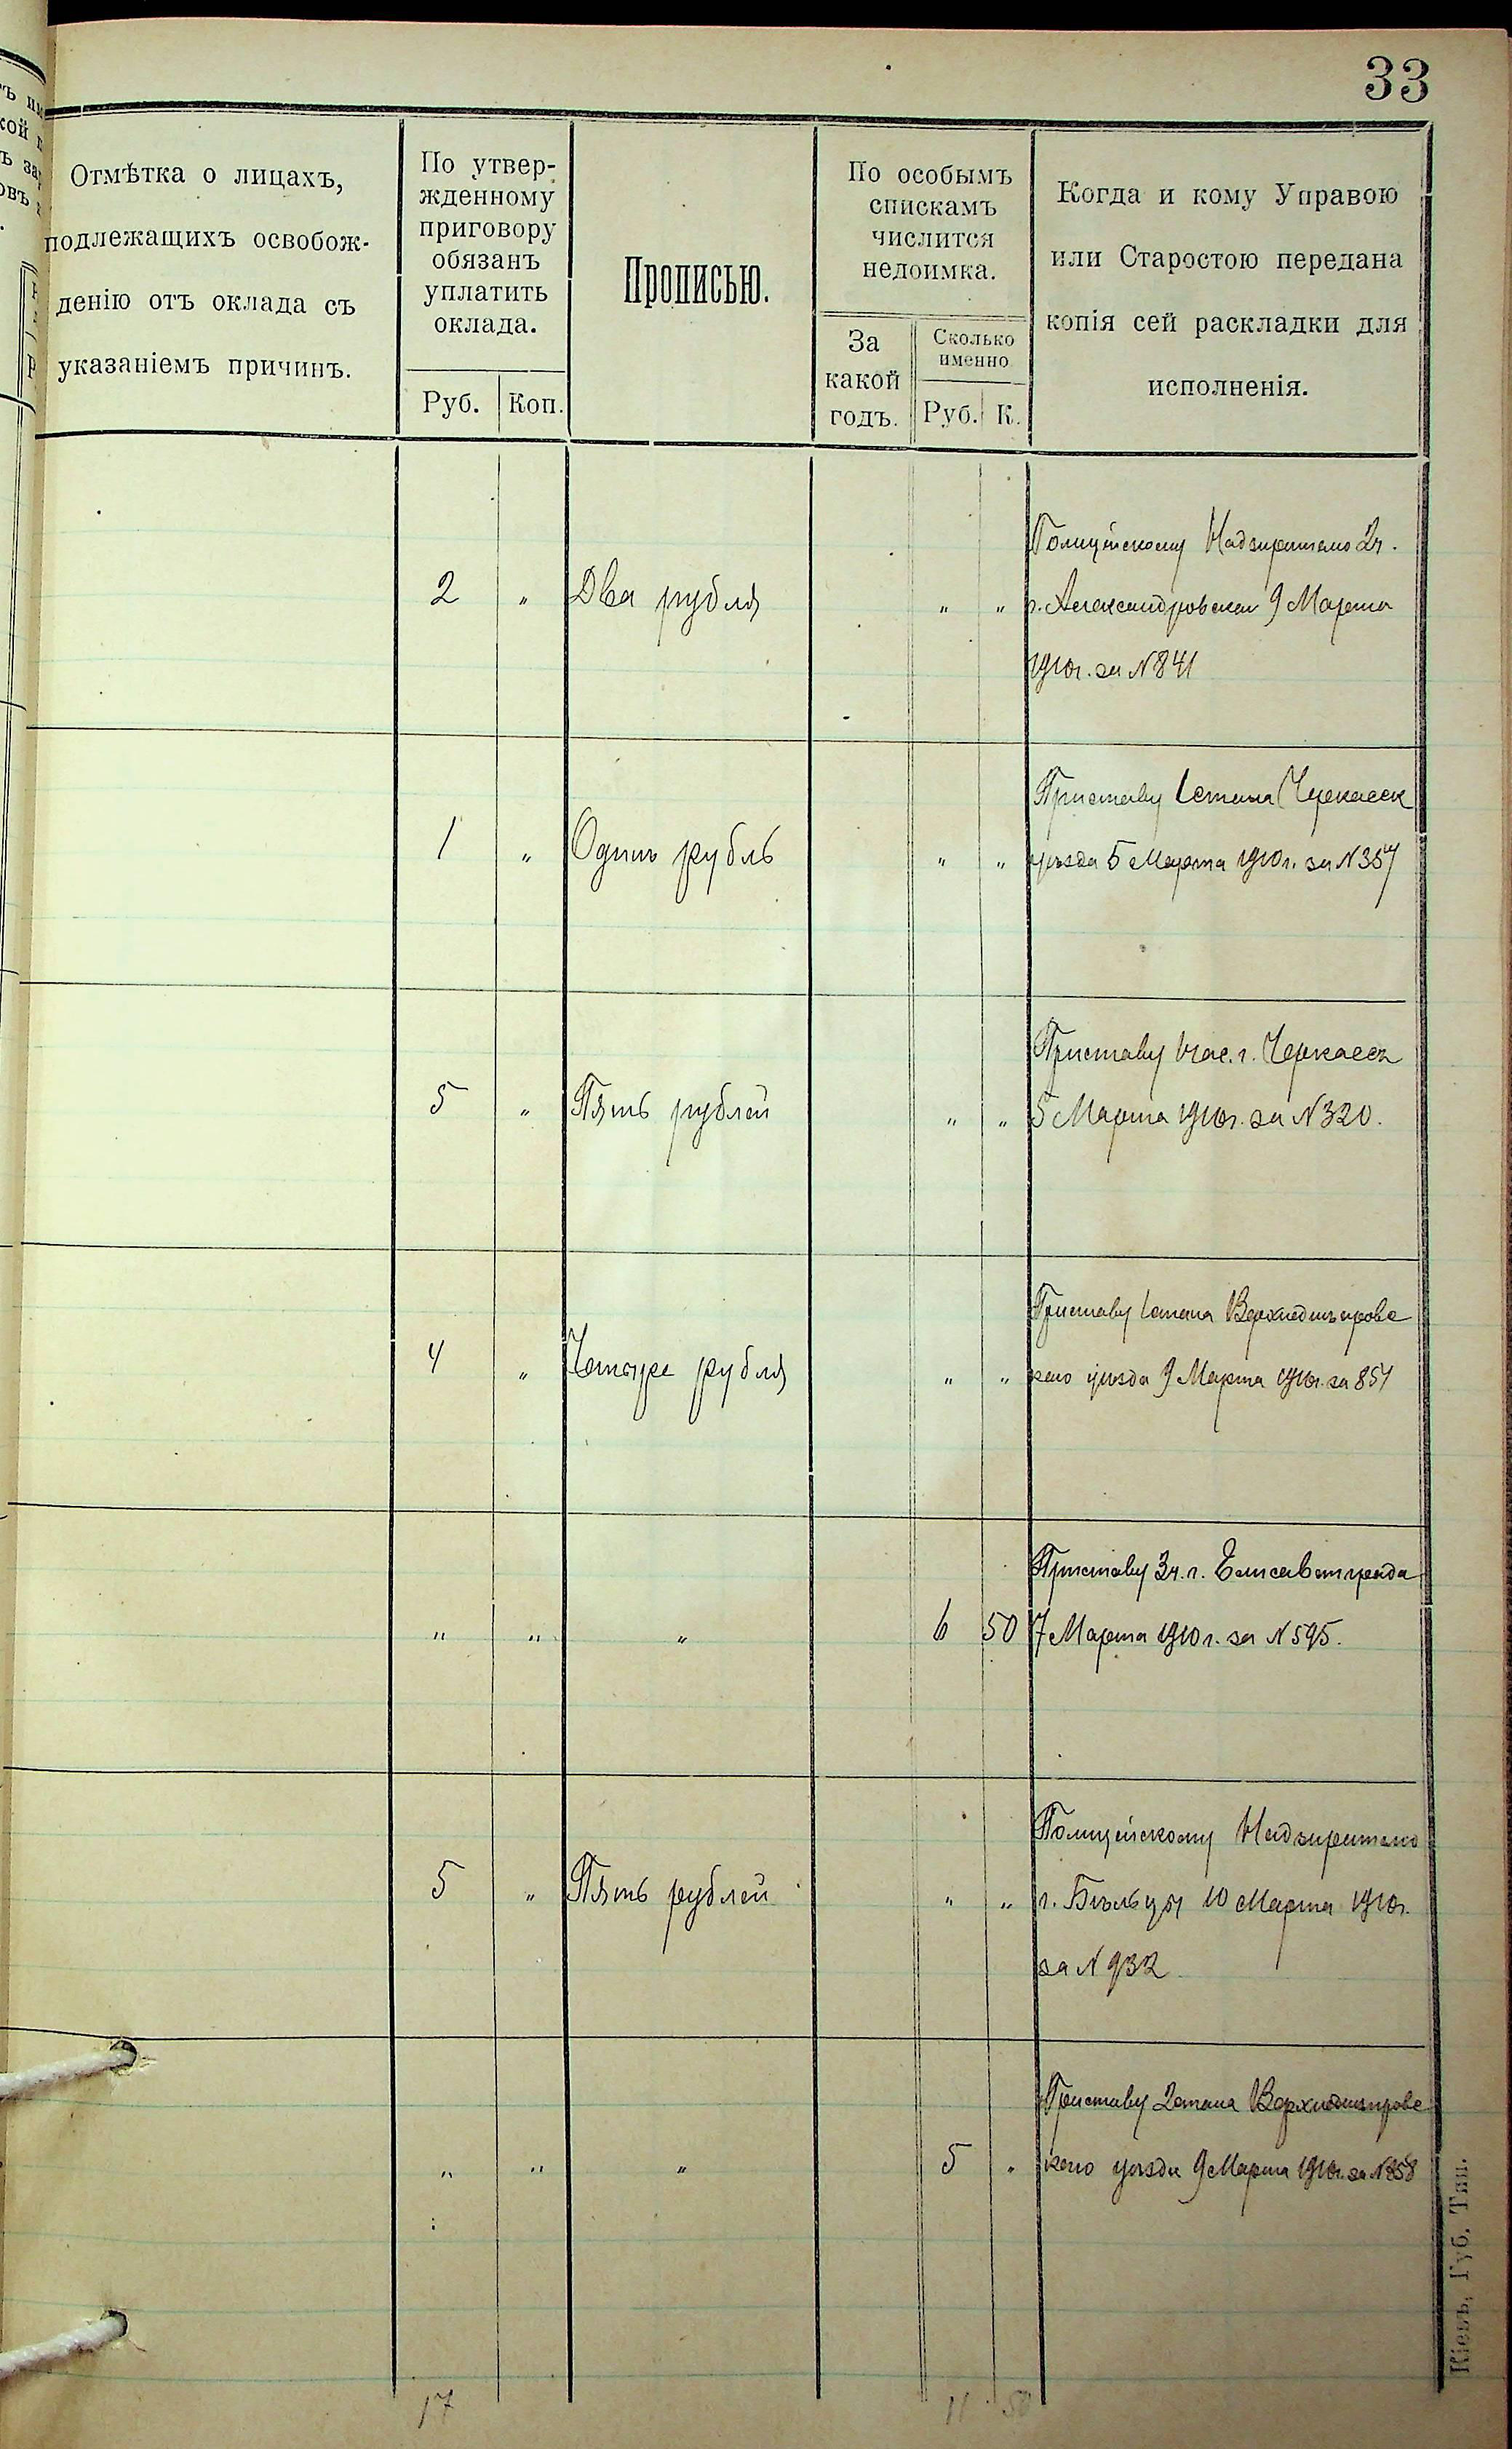 33
Отмѣтка о лицахъ,
подлежащихъ освобож-
денію отъ оклада съ
указаніемъ причинъ.
По утвер-
жденному
приговору
обязанъ
уплатить
оклада.
Руб. Коп.
Прописью.
По особымъ
спискамъ
числится
недоимка.
За
какой
годъ.
Сколько
именно
Руб. К.
Когда и кому Управою
или Старостою передана
копія сей раскладки для
исполненія.
Полицейскому Надзирателю 2ч.
2 " Два рубля " " г. Александровска 9 Марта
1910г. за №841
Приставу 1 стана Черкасск
1 " Одинъ рубль " " уѣзда 5 Марта 1910г. за №357
Приставу г. Черкассъ
5 " Пять рублей " " 5 Марта 1910г. за №320.
Приставу 1 стана Верхнеднѣпровс
4 " Четыре рубля " " каго уѣзда 9 Марта 1910г. за 857
Приставу 3ч. г. Елисаветграда
" " " 6 50 7 Марта 1910г. за №595.
Полицейскому Надзирателю
5 " Пять рублей " " г. Бѣльцы 10 Марта 1910г.
за №932
Приставу 2 стана Верхнеднѣпровс
" " " 5 " каго уѣзда 9 Марта 1910г. за №858
17 11 50
Кіевъ, Губ. Тип.